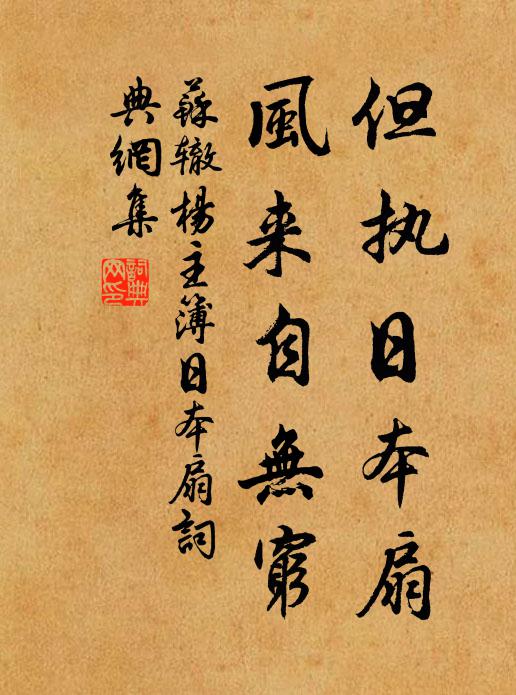 但执日本扇
風来自無窮
蘇辙楊主簿日本扇詞
典網集
詞典網印